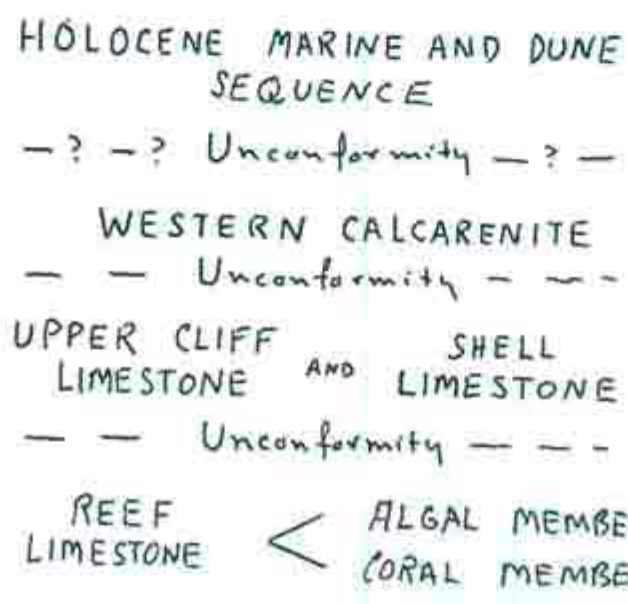 HOLOCENE MARINE AND DUNE
SEQUENCE
— ? — ? Unconformity — ? —
WESTERN CALCARENITE
— — Unconformity — — -
UPPER CLIFF LIMESTONE AND SHELL LIMESTONE
— — Unconformity — — -
REEF LIMESTONE < ALGAL MEMBE
CORAL MEMBE